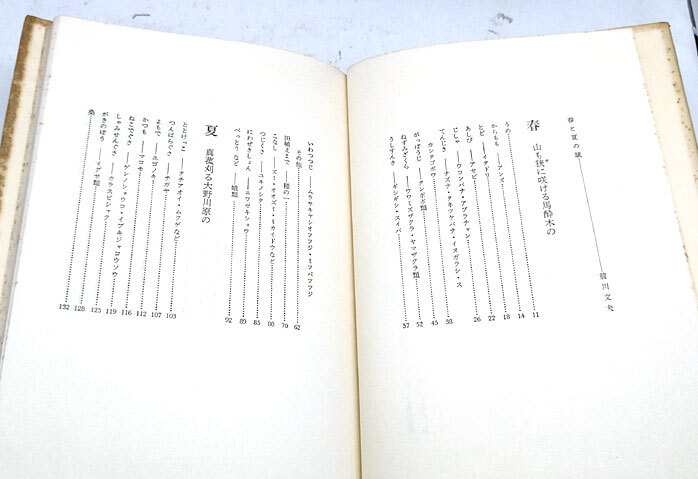 春と夏の賦 前川文夫
春 山も狭に咲ける馬酔木の
うめ 11
からもも ——アンズ 14
とど ——イタドリ 18
あしび ——アセビ 22
じしゃ ——ウコンバナ・アブラチャン 26
てんじき ——ナズナ・タネツケバナ・イヌガラシ・ス
カシタゴボウ 33
がっぽうじ ——タンポポ類 45
ねずみざくら ——ウワミズザクラ・ヤマザクラ類 52
うしずんき ——ギシギシ・スイバ 57
いわつつじ ——ムラサキヤシオツツジ・ミツバツツジ
その他 62
田植えまで ——種の一 70
こなし ——ズミ・オオズミ・ミカイドウなど 80
つじくさ ——ユキノシタ 85
にわぜきしょん ——ニワゼキショウ 89
べっとうなど ——蛾類 92
夏 真菰刈る大野川原の
ととけっこ ——タチアオイ・ムクゲなど 103
つんばらぐさ ——チガヤ 107
よもで ——エゴノキ 112
かつも ——マコモ 116
ねこでぐさ ——ゲンノショウコ・イブキジャコウソウ 119
しゃみせんぐさ ——カラスビシャク 125
がきのぼう ——イグサ類 128
桑 132